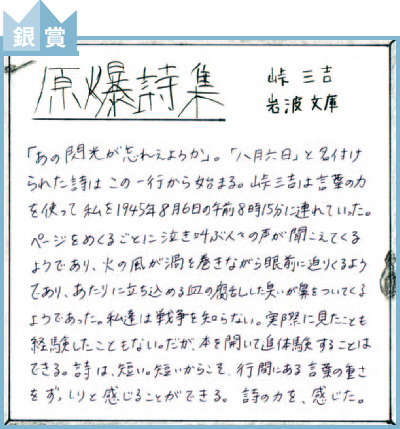 銀賞
原爆詩集
峠 三吉
岩波文庫
「あの閃光が忘れえようか」。「八月六日」と名付け
られた詩はこの一行から始まる。峠三吉は言葉の力
を使って私を1945年8月6日の午前8時15分に連れていった。
ページをめくるごとに泣き叫ぶ人々の声が聞こえてくる
ようであり、火の風が渦を巻きながら眼前に迫りくるよう
であり、あたりに立ち込める血の腐乱した臭いが鼻をついてくる
ようであった。私達は戦争を知らない。実際に見たことも
経験したこともない。だが、本を開いて追体験することは
できる。詩は、短い。短いからこそ、行間にある言葉の重さ
をずっしりと感じることができる。詩の力を、感じた。